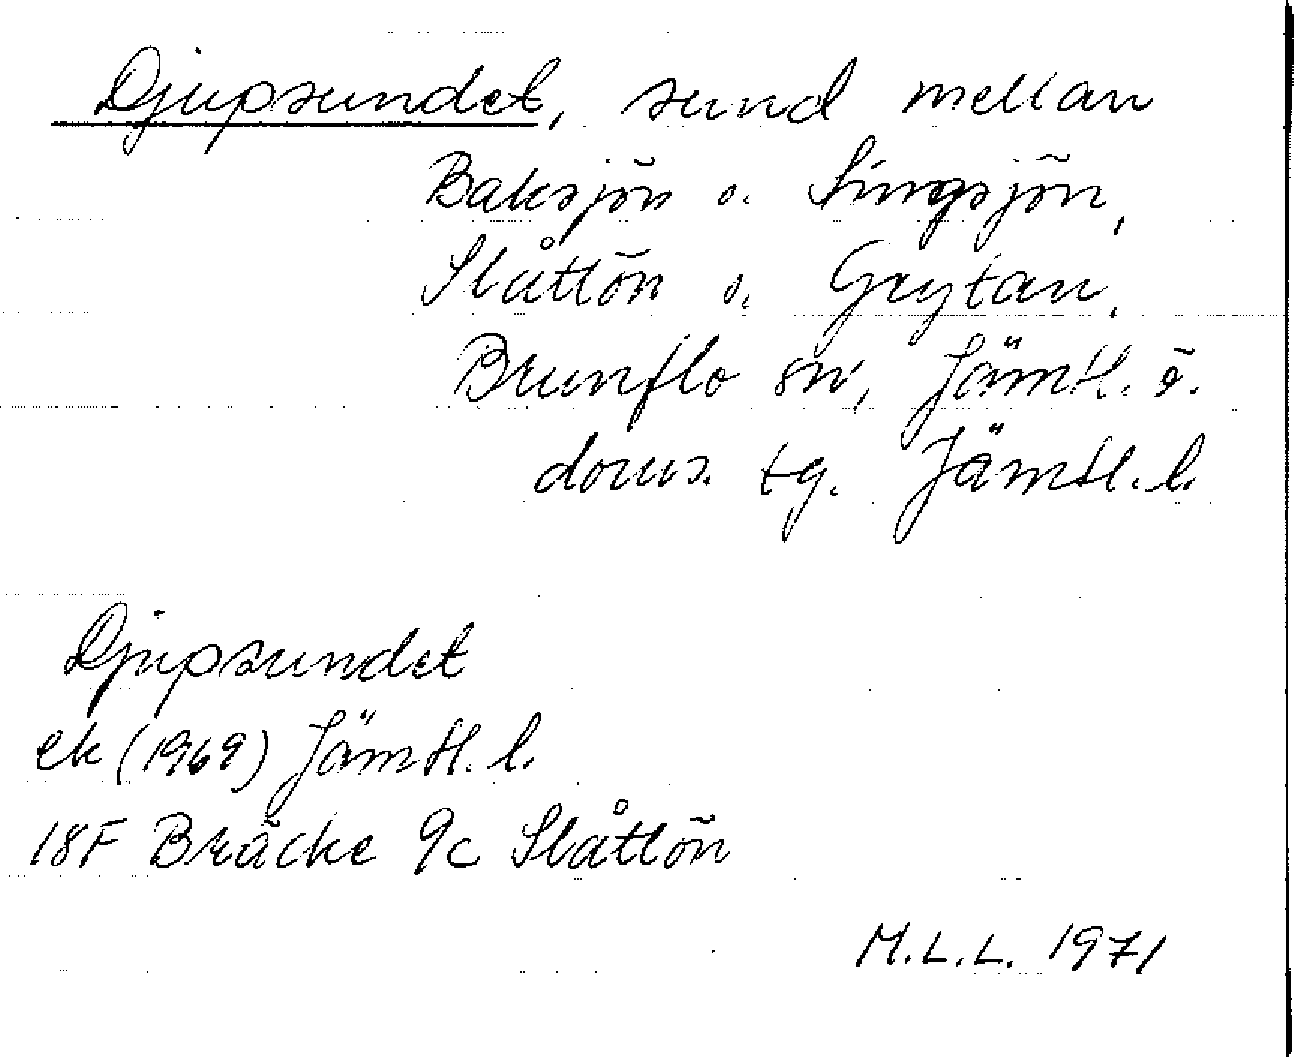 Djupsundet, sund mellan
Baksjön o. Singsjön,
Slåttön o. Grytan,
Brunflo sn, Jämtl. ö.
doms. tg. Jämtl. l.
Djupsundet
ek (1969) Jämtl. l.
18F Bräcke 9c Slåttön
M.L.L. 1971